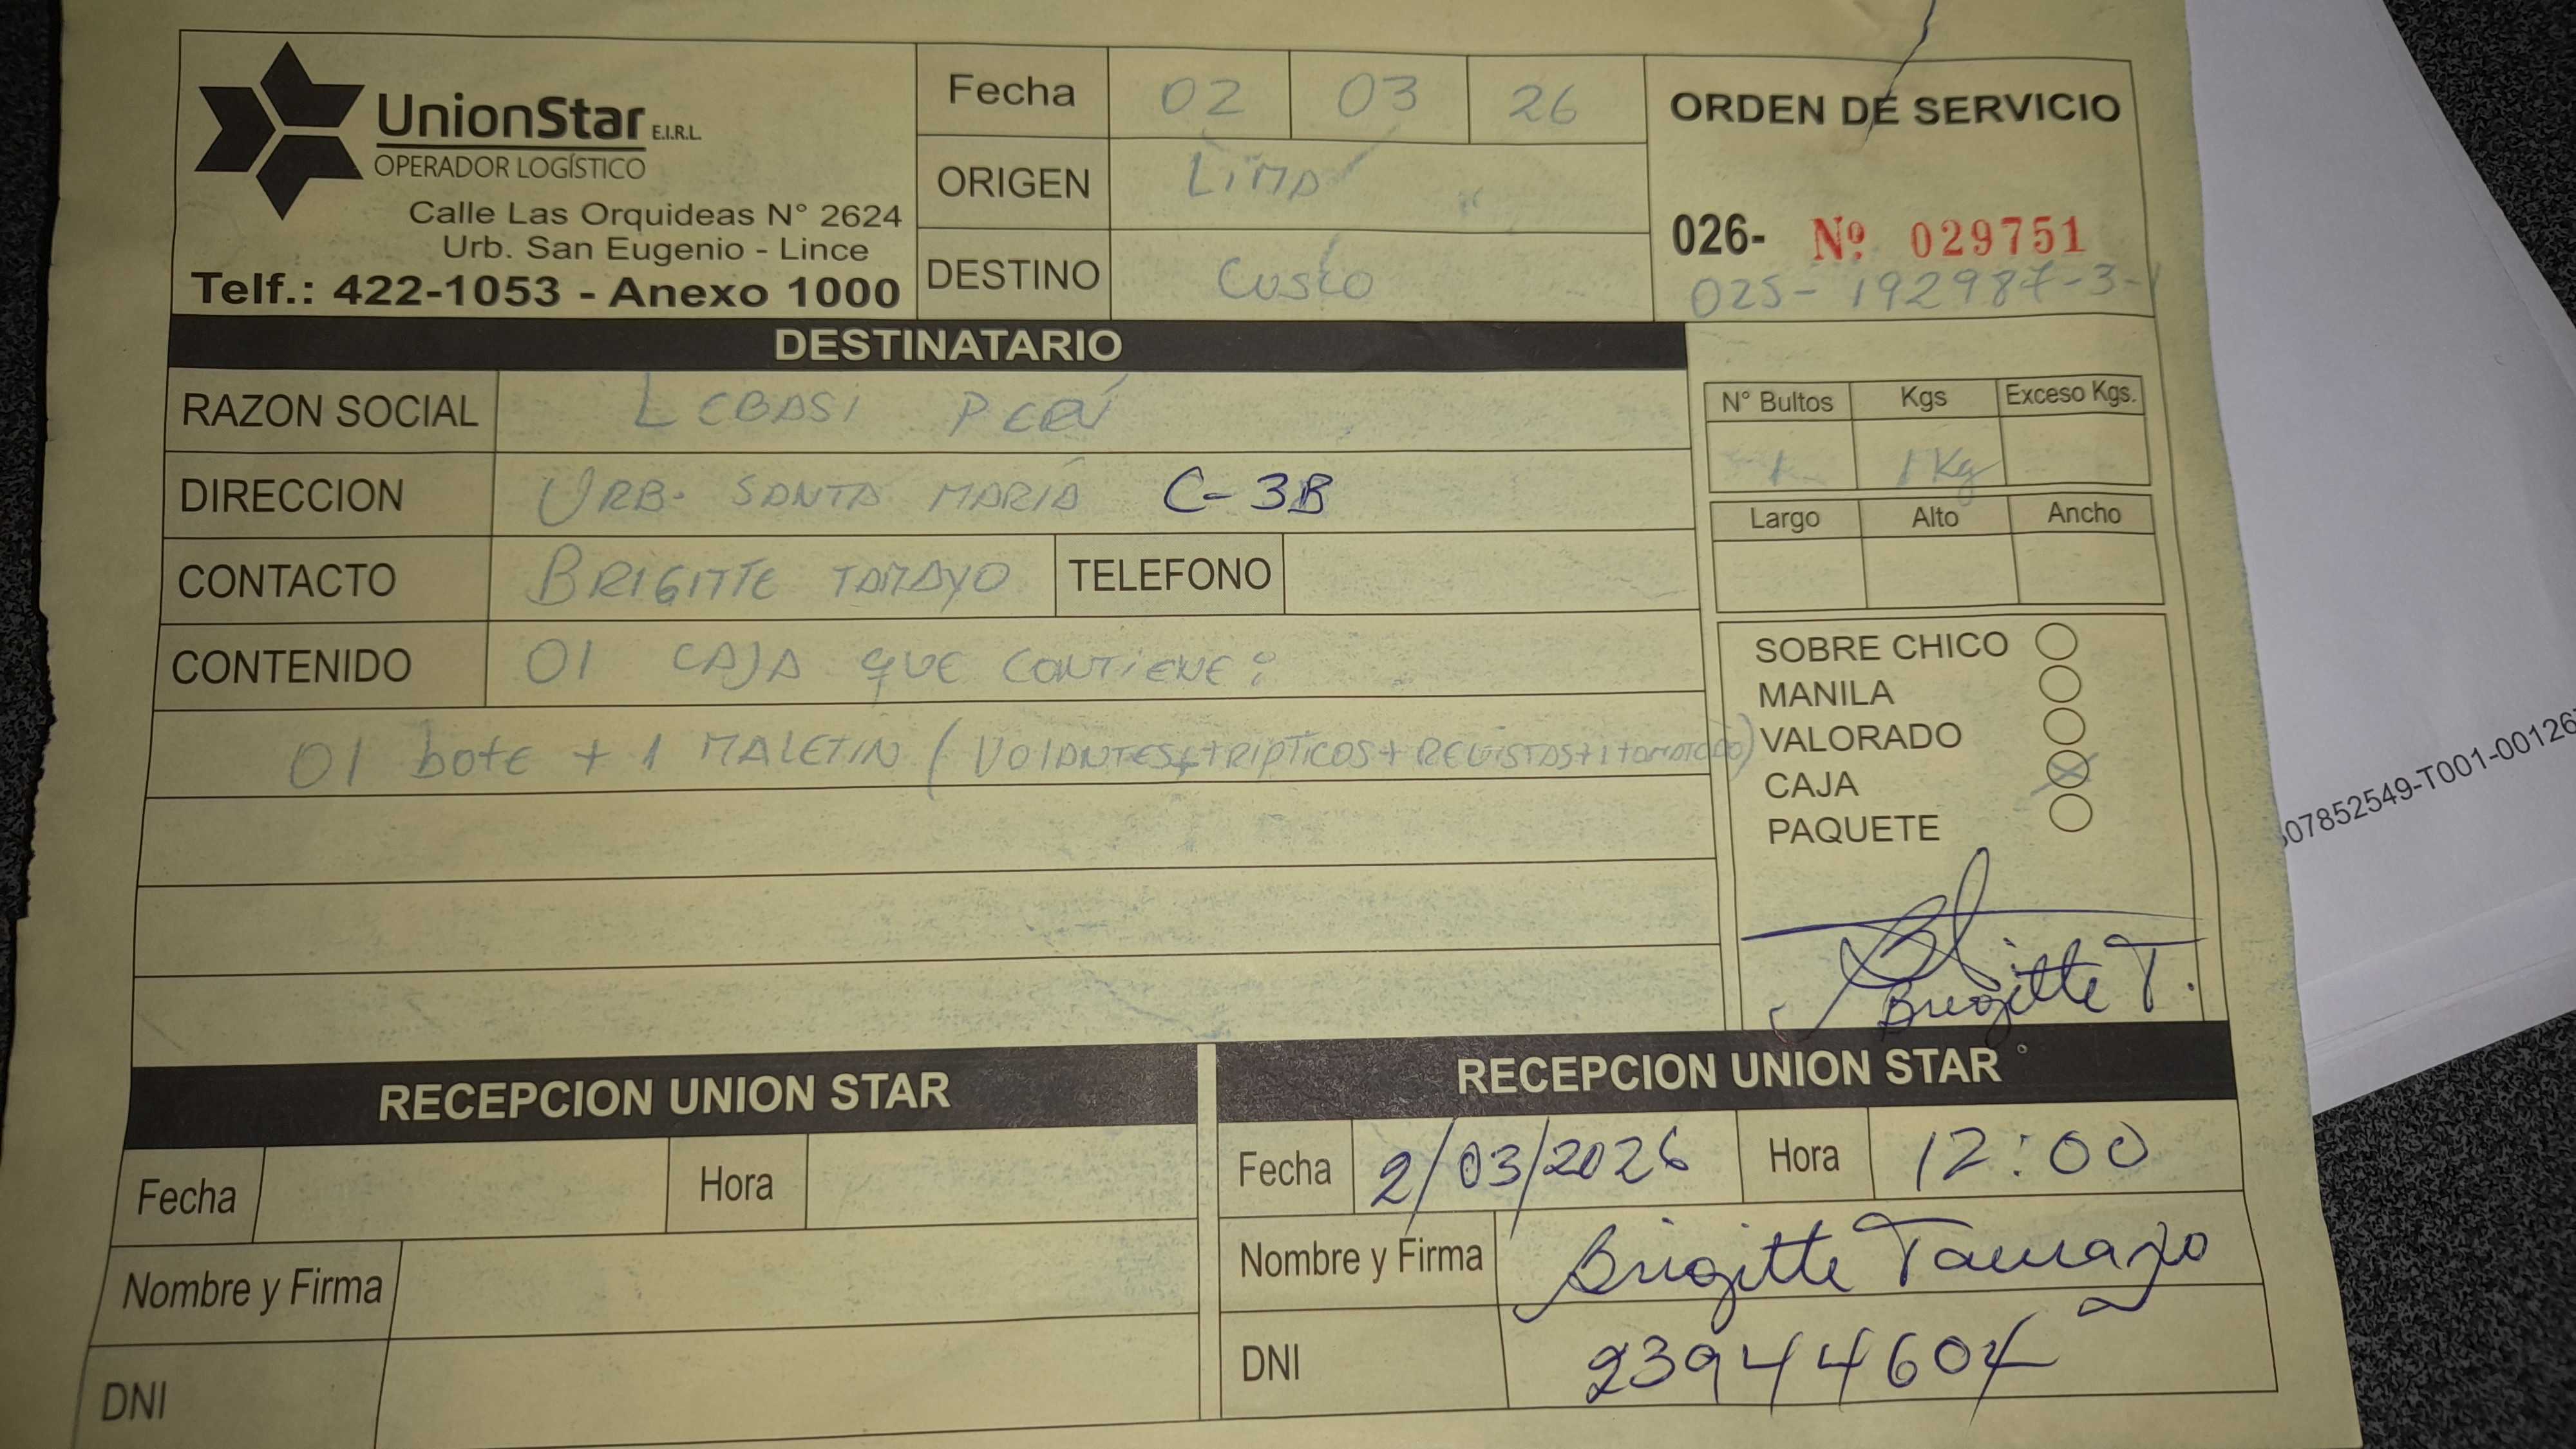 UnionStar E.I.R.L.
OPERADOR LOGÍSTICO
Calle Las Orquideas N° 2624
Urb. San Eugenio - Lince
Telf.: 422-1053 - Anexo 1000
Fecha 02 03 26
ORIGEN LIMA
DESTINO CUSCO
ORDEN DE SERVICIO
026- Nº 029751
025- 192987-3-1
DESTINATARIO
RAZON SOCIAL LEBASI PERÚ
DIRECCION URB. SANTA MARÍA C-3B
CONTACTO BRIGITTE TAMAYO TELEFONO
CONTENIDO 01 CAJA QUE CONTIENE:
01 bote + 1 MALETIN (VOLANTES + TRIPTICOS + REVISTAS + 1
N° Bultos Kgs Exceso Kgs.
1 1 Kg
Largo Alto Ancho
SOBRE CHICO
MANILA
VALORADO
CAJA X
PAQUETE
Brigitte T.
RECEPCION UNION STAR
Fecha Hora
Nombre y Firma
DNI
RECEPCION UNION STAR
Fecha 2/03/2026 Hora 12:00
Nombre y Firma Brigitte Tamayo
DNI 23944604
07852549-T001-00126